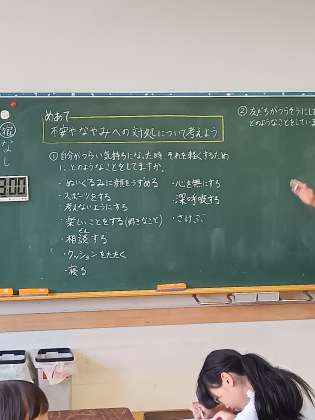 めあて
不安やなやみへの対処について考えよう
宿
なし
①自分がつらい気持ちになった時、それを軽くするため
に、どのようなことをしていますか。
・ぬいぐるみに顔をうずめる
・スポーツをする
考えないようにする
・楽しいことをする(好きなこと)
・相談する
だん
・クッションをたたく
・寝る
・心を無にする
・深呼吸する
・さけぶ
②友だちがつらそうにして
どのようなことをしていま